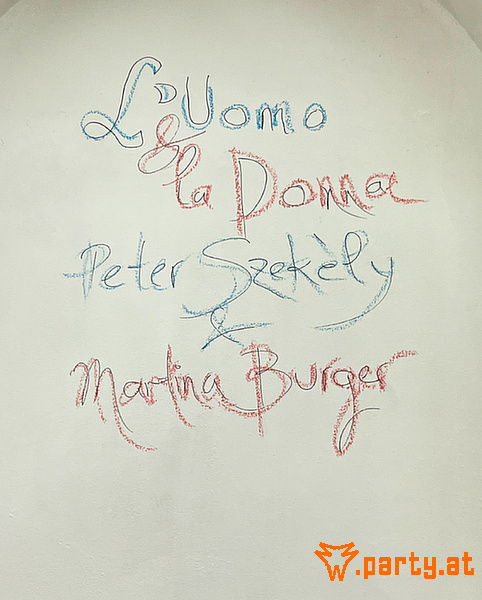 L'Uomo
&
la Donna
Peter Szekèly
&
Martina Burger
W.party.at